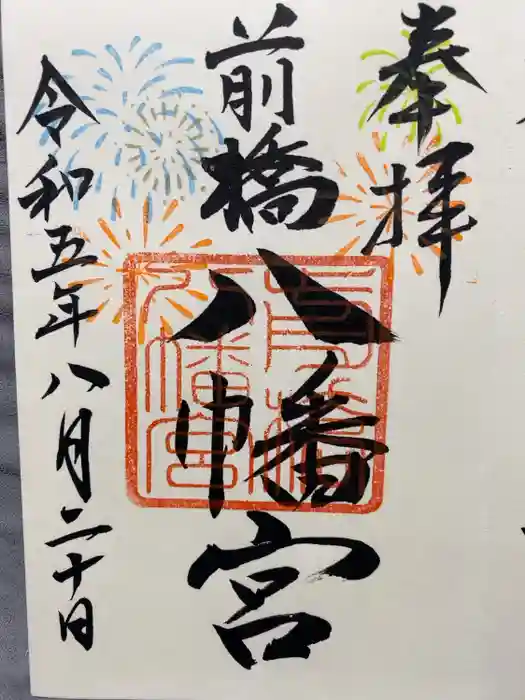 奉拝
前橋八幡宮
令和五年八月二十日